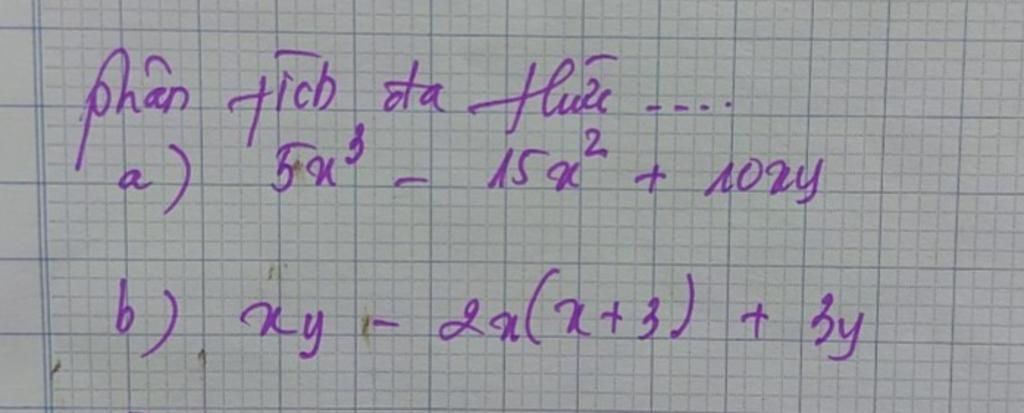 phân tích đa thức ....
a) 5x³ - 15x² + 10xy
b) xy - 2x(x+3) + 3y